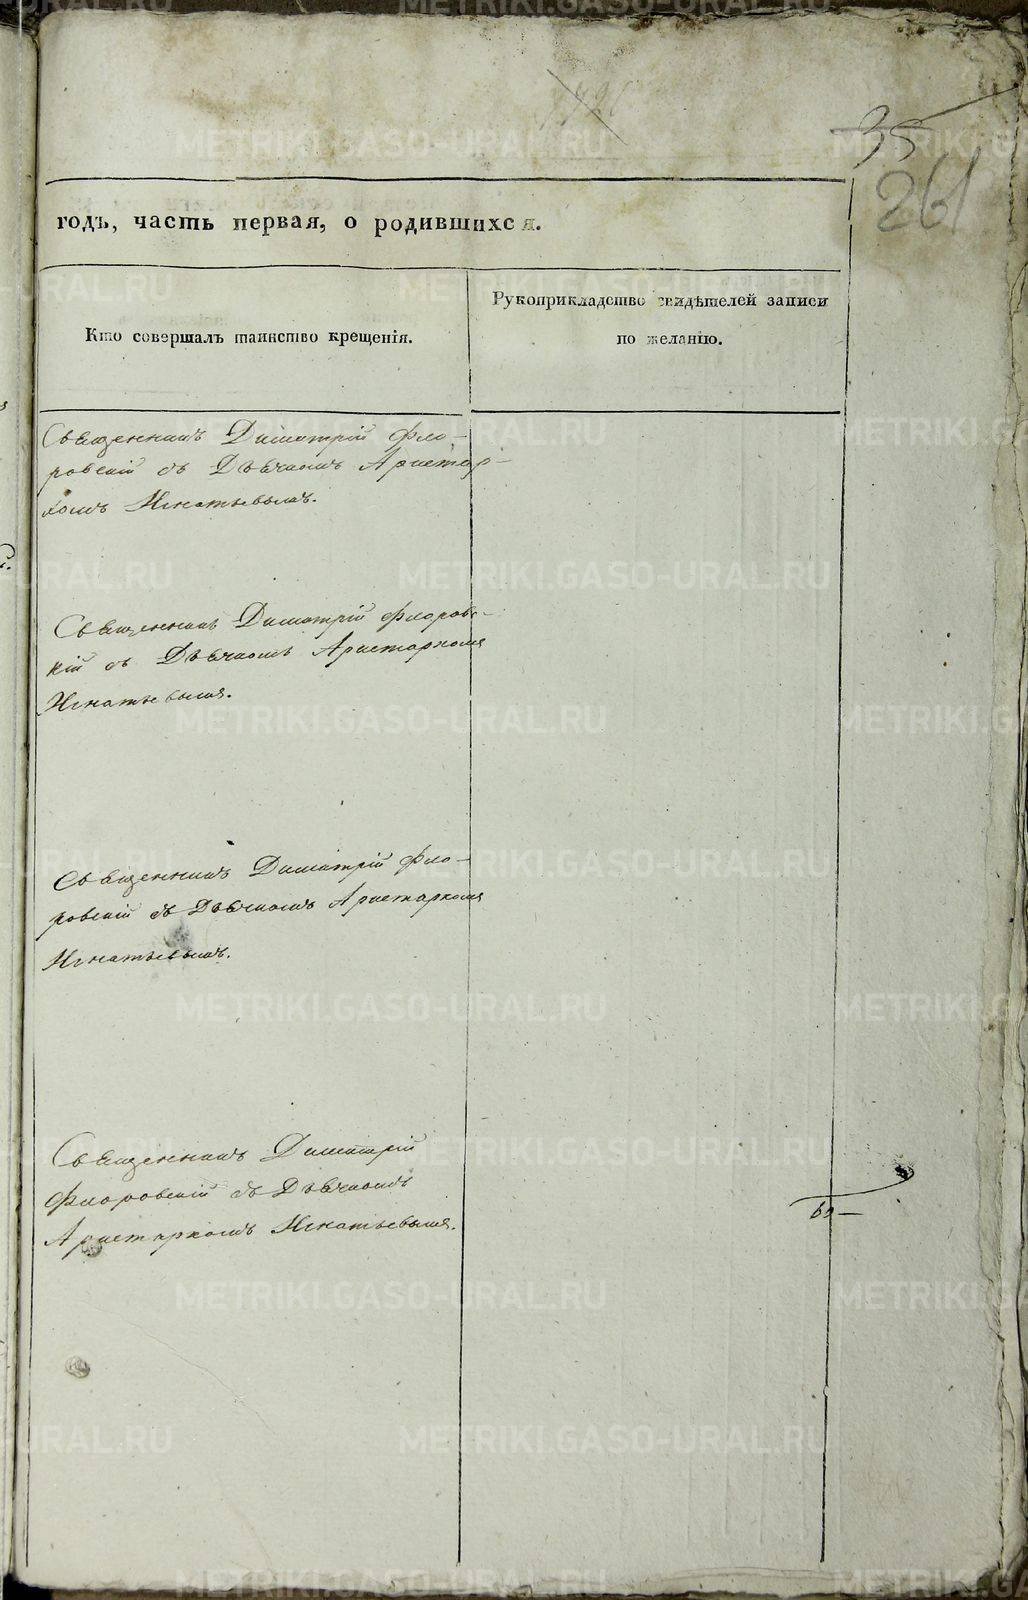 35
261
годъ, часть первая, о родившихся.
Кто совершалъ таинство крещенія.
Рукоприкладство свидѣтелей записи
по желанію.
Священникъ Димитрій Фло-
ровскій съ Дьячкомъ Аристар-
хомъ Игнатьевымъ.
Священникъ Димитрій Флоровс-
кій съ Дьячкомъ Аристархомъ
Игнатьевымъ.
Священникъ Димитрій Фло-
ровскій съ Дьячкомъ Аристархомъ
Игнатьевымъ.
Священникъ Димитрій
Флоровскій съ Дьячкомъ
Аристархомъ Игнатьевымъ.
METRIKI.GASO-URAL.RU